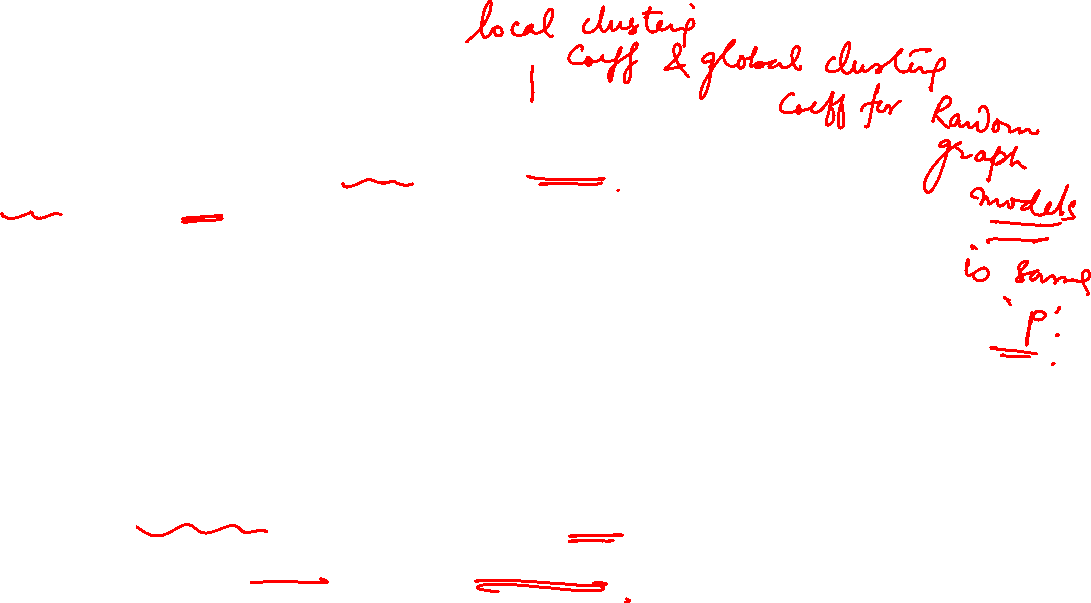 local clustering
Coeff & global clustering
Coeff for Random
graph
models
is same
'p'.